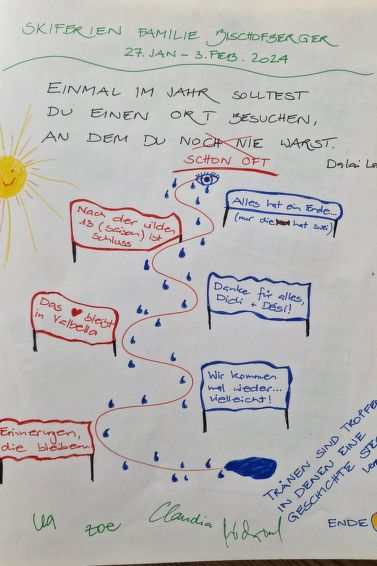 SKIFERIEN FAMILIE BISCHOFBERGER
27. JAN – 3. FEB. 2024
EINMAL IM JAHR SOLLTEST
DU EINEN ORT BESUCHEN,
AN DEM DU NOCH NIE WARST.
SCHON OFT
Dalai La
Alles hat ein Ende...
(nur die hat zwei)
Nach der wilden
13 (saison) ist
schluss
Danke für alles,
Didi + Dési!
Das ❤ bleibt
in Valbella
Wir kommen
mal wieder...
vielleicht!
Erinnerungen,
die bleiben...
TRÄNEN SIND TROPFEN
IN DENEN EINE
GESCHICHTE
Lea
zoe
Claudia
ENDE